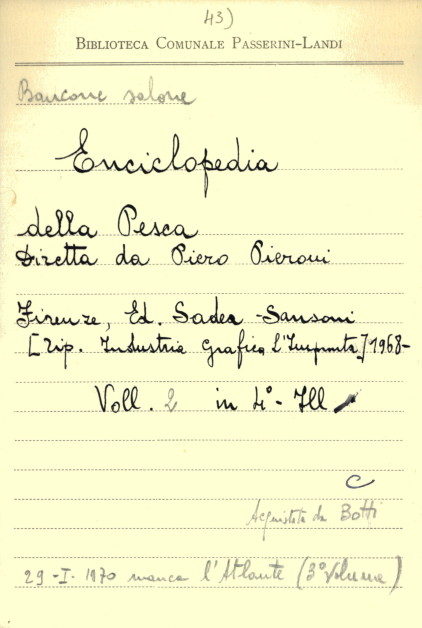 43)
BIBLIOTECA COMUNALE PASSERINI-LANDI
Bancone salone
Enciclopedia
della Pesca
Diretta da Piero Pieroni
Firenze, Ed. Sadea-Sansoni
[Tip. Industria Grafica l'Impronta] 1968-
Voll. 2 in 4°- Ill
C
Acquistata da Botti
29-I-1970 manca l'Atlante (3° Volume)